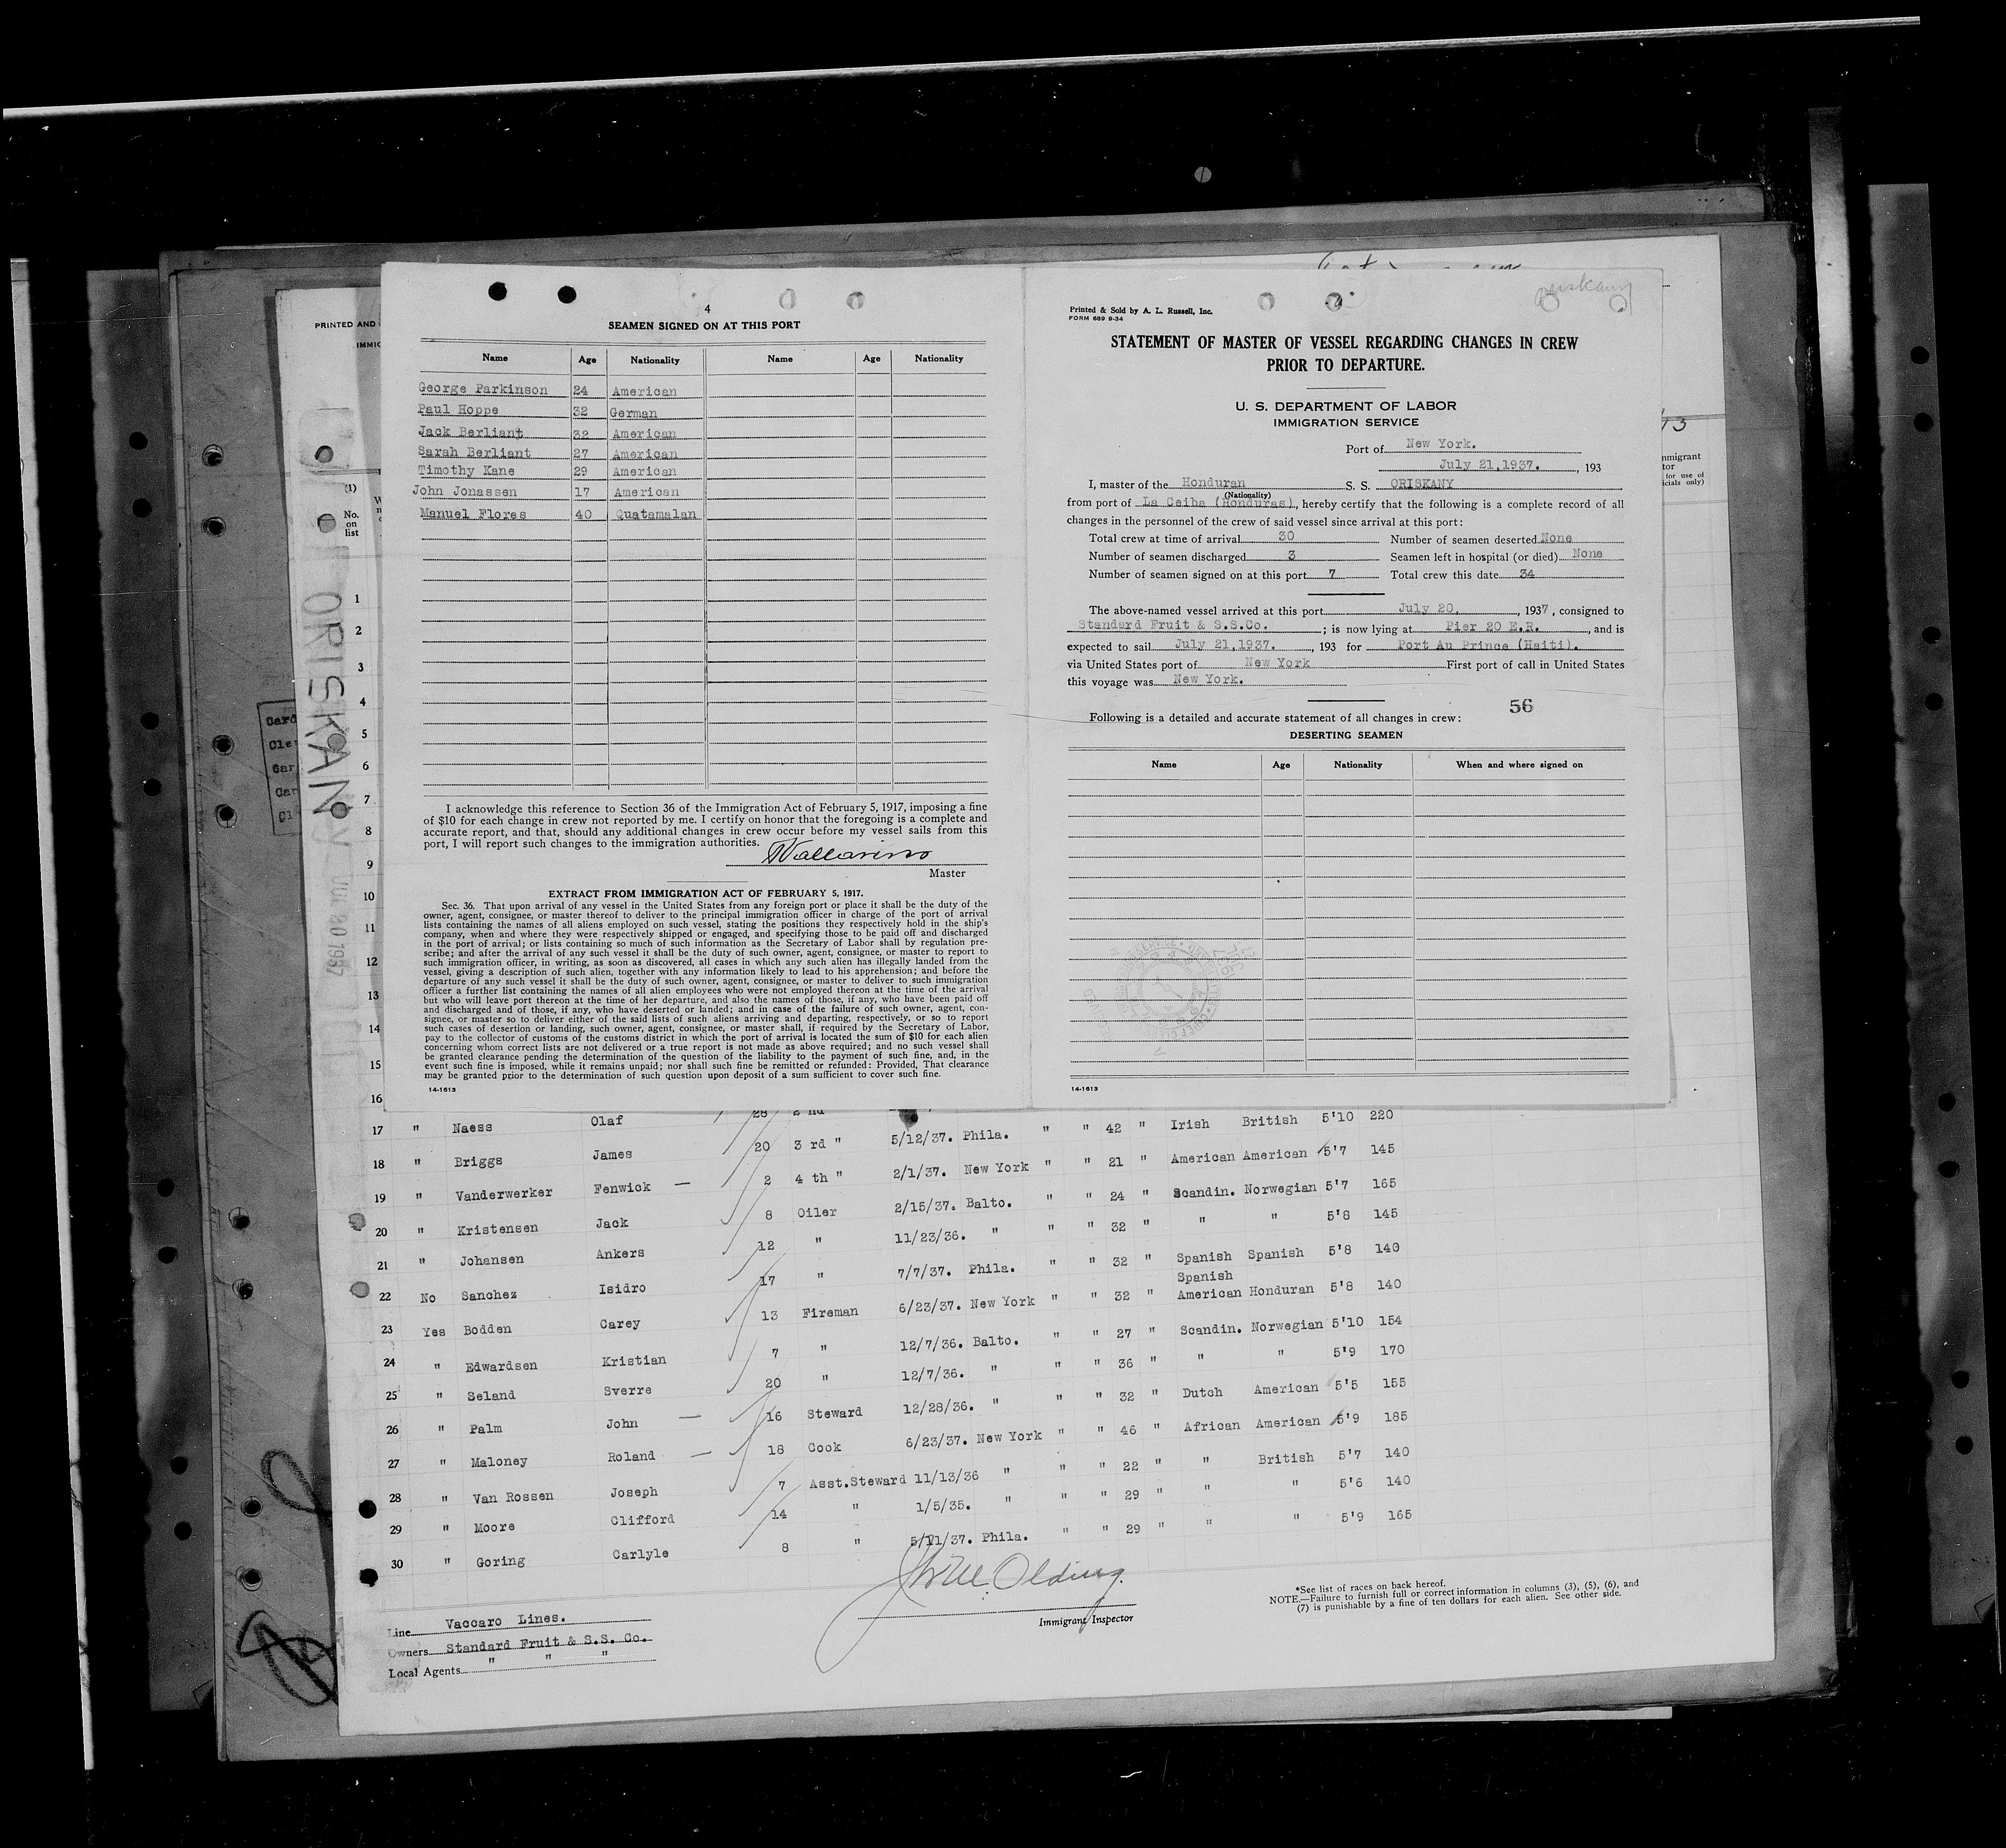 4
SEAMEN SIGNED ON AT THIS PORT
Name Age Nationality Name Age Nationality
George Parkinson 24 American
Paul Hoppe 32 German
Jack Berliant 32 American
Sarah Berliant 27 American
Timothy Kane 29 American
John Jonassen 17 American
Manuel Flores 40 Quatamalan
I acknowledge this reference to Section 36 of the Immigration Act of February 5, 1917, imposing a fine
of $10 for each change in crew not reported by me. I certify on honor that the foregoing is a complete and
accurate report, and that, should any additional changes in crew occur before my vessel sails from this
port, I will report such changes to the immigration authorities.
Master
EXTRACT FROM IMMIGRATION ACT OF FEBRUARY 5, 1917.
Sec. 36. That upon arrival of any vessel in the United States from any foreign port or place it shall be the duty of the
owner, agent, consignee, or master thereof to deliver to the principal immigration officer in charge of the port of arrival
lists containing the names of all aliens employed on such vessel, stating the positions they respectively hold in the ship's
company, when and where they were respectively shipped or engaged, and specifying those to be paid off and discharged
in the port of arrival; or lists containing so much of such information as the Secretary of Labor shall by regulation pre-
scribe; and after the arrival of any such vessel it shall be the duty of such owner, agent, consignee, or master to report to
such immigration officer, in writing, as soon as discovered, all cases in which any such alien has illegally landed from the
vessel, giving a description of such alien, together with any information likely to lead to his apprehension; and before the
departure of any such vessel it shall be the duty of such owner, agent, consignee, or master to deliver to such immigration
officer a further list containing the names of all alien employees who were not employed thereon at the time of the arrival
but who will leave port thereon at the time of her departure, and also the names of those, if any, who have been paid off
and discharged and of those, if any, who have deserted or landed; and in case of the failure of such owner, agent, con-
signee, or master so to deliver either of the said lists of such aliens arriving and departing, respectively, or so to report
such cases of desertion or landing, such owner, agent, consignee, or master shall, if required by the Secretary of Labor,
pay to the collector of customs of the customs district in which the port of arrival is located the sum of $10 for each alien
concerning whom correct lists are not delivered or a true report is not made as above required; and no such vessel shall
be granted clearance pending the determination of the question of the liability to the payment of such fine, and, in the
event such fine is imposed, while it remains unpaid; nor shall such fine be remitted or refunded: Provided, That clearance
may be granted prior to the determination of such question upon deposit of a sum sufficient to cover such fine.
14-1613
Oriskany
Printed & Sold by A. L. Russell, Inc.
FORM 689 9-34
STATEMENT OF MASTER OF VESSEL REGARDING CHANGES IN CREW
PRIOR TO DEPARTURE.
U. S. DEPARTMENT OF LABOR
IMMIGRATION SERVICE
Port of New York.
July 21,1937. , 193
I, master of the Honduran S. S. ORISKANY
(Nationality)
from port of La Ceiba (Honduras), hereby certify that the following is a complete record of all
changes in the personnel of the crew of said vessel since arrival at this port:
Total crew at time of arrival 30 Number of seamen deserted None
Number of seamen discharged 3 Seamen left in hospital (or died) None
Number of seamen signed on at this port 7 Total crew this date 34
The above-named vessel arrived at this port July 20, , 1937, consigned to
Standard Fruit & S.S.Co. ; is now lying at Pier 20 E.R. , and is
expected to sail July 21,1937. , 193 for Port Au Prince (Haiti).
via United States port of New York First port of call in United States
this voyage was New York.
56
Following is a detailed and accurate statement of all changes in crew:
DESERTING SEAMEN
Name Age Nationality When and where signed on
14-1613
PRINTED AND
IMMIG
(1)
No.
on
list
ORISKANY
JUL 20 1937
1
2
3
4
5
6
7
8
9
10
11
12
13
14
15
16
17 " Naess Olaf 28 2 nd
18 " Briggs James 20 3 rd " 5/12/37. Phila. " " 42 " Irish British 5'10 220
19 " Vanderwerker Fenwick — 2 4 th " 2/1/37. New York " " 21 " American American 5'7 145
20 " Kristensen Jack 8 Oiler 2/15/37. Balto. " " 24 " Scandin. Norwegian 5'7 165
21 " Johansen Ankers 12 " 11/23/36. " " " 32 " " " 5'8 145
22 No Sanchez Isidro 17 " 7/7/37. Phila. " " 32 " Spanish Spanish 5'8 140
Spanish
23 Yes Bodden Carey 13 Fireman 6/23/37. New York " " 32 " American Honduran 5'8 140
24 " Edwardsen Kristian 7 " 12/7/36. Balto. " " 27 " Scandin. Norwegian 5'10 154
25 " Seland Sverre 20 " 12/7/36. " " " 36 " " " 5'9 170
26 " Palm John — 16 Steward 12/28/36. " " " 32 " Dutch American 5'5 155
27 " Maloney Roland — 18 Cook 6/23/37. New York " " 46 " African American 5'9 185
28 " Van Rossen Joseph 7 Asst.Steward 11/13/36 " " " 22 " " British 5'7 140
29 " Moore Clifford 14 " 1/5/35. " " " 29 " " " 5'6 140
30 " Goring Carlyle 8 " 5/11/37. Phila. " " 29 " " " 5'9 165
Line Vaccaro Lines.
Owners Standard Fruit & S.S. Co.
Local Agents " " "
Olding
Immigrant Inspector
*See list of races on back hereof.
NOTE.—Failure to furnish full or correct information in columns (3), (5), (6), and
(7) is punishable by a fine of ten dollars for each alien. See other side.